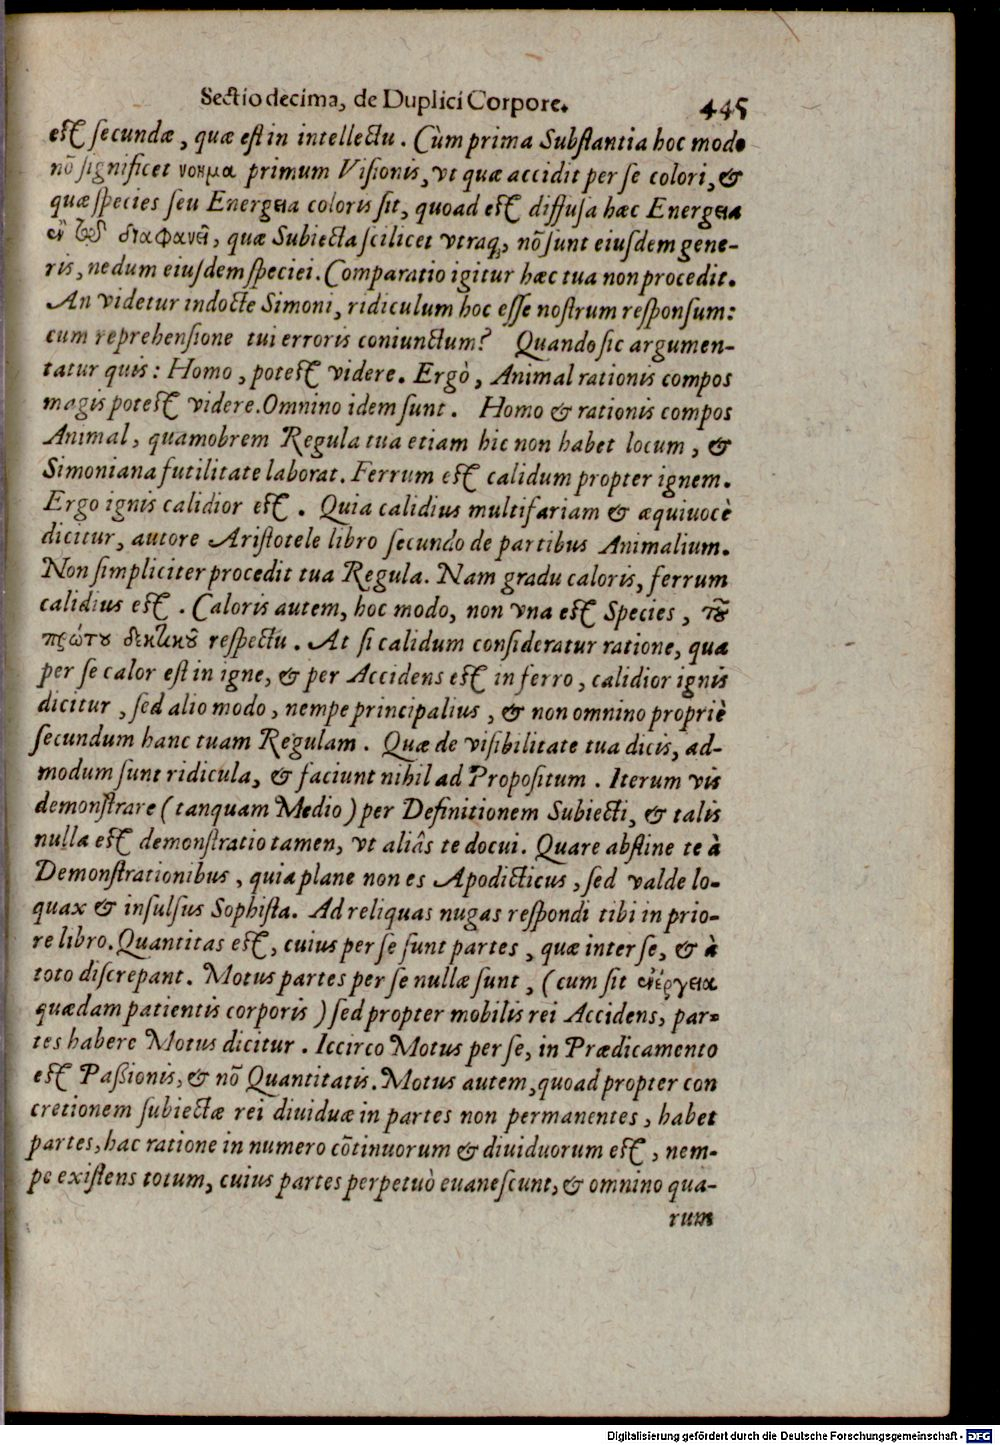 Sectio decima, de Duplici Corpore. 445
est secundæ, quæ est in intellectu. Cùm prima Substantia hoc modo
nō significet νοημα primum Visionis, vt quæ accidit per se colori, &
quæ species seu Energεια coloris sit, quoad est diffusa hæc Energεια
ἐν τῷ διαφανεῖ, quæ Subiecta scilicet vtraq, nō sunt eiusdem gene-
ris, nedum eiusdem speciei. Comparatio igitur hæc tua non procedit.
An videtur indocte Simoni, ridiculum hoc esse nostrum responsum:
cum reprehensione tui erroris coniunctum? Quando sic argumen-
tatur quis: Homo, potest videre. Ergò, Animal rationis compos
magis potest videre. Omnino idem sunt. Homo & rationis compos
Animal, quamobrem Regula tua etiam hic non habet locum, &
Simoniana futilitate laborat. Ferrum est calidum propter ignem.
Ergo ignis calidior est. Quia calidius multifariam & æquiuocè
dicitur, autore Aristotele libro secundo de partibus Animalium.
Non simpliciter procedit tua Regula. Nam gradu caloris, ferrum
calidius est. Caloris autem, hoc modo, non vna est Species, τοῦ
πρώτου δεκτικοῦ respectu. At si calidum consideratur ratione, quæ
per se calor est in igne, & per Accidens est in ferro, calidior ignis
dicitur, sed alio modo, nempe principalius, & non omnino propriè
secundum hanc tuam Regulam. Quæ de visibilitate tua dicis, ad-
modum sunt ridicula, & faciunt nihil ad Propositum. Iterum vis
demonstrare (tanquam Medio) per Definitionem Subiecti, & talis
nulla est demonstratio tamen, vt aliâs te docui. Quare abstine te à
Demonstrationibus, quia plane non es Apodicticus, sed valde lo-
quax & insulsus Sophista. Ad reliquas nugas respondi tibi in prio-
re libro. Quantitas est, cuius per se sunt partes, quæ inter se, & à
toto discrepant. Motus partes per se nullæ sunt, (cum sit ἐνέργεια
quædam patientis corporis) sed propter mobilis rei Accidens, par-
tes habere Motus dicitur. Iccirco Motus per se, in Prædicamento
est Passionis, & nō Quantitatis. Motus autem, quoad propter con
cretionem subiectæ rei diuiduæ in partes non permanentes, habet
partes, hac ratione in numero cōtinuorum & diuiduorum est, nem-
pe existens totum, cuius partes perpetuò euanescunt, & omnino qua-
rum
Digitalisierung gefördert durch die Deutsche Forschungsgemeinschaft - DFG